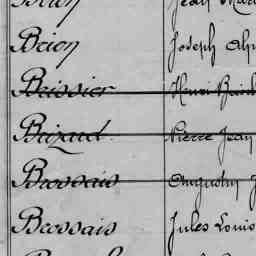 Brion Joseph Alp
Brissier Henri
Brizard Pierre Jean
Brossais Augustin J
Brossais Jules Louis